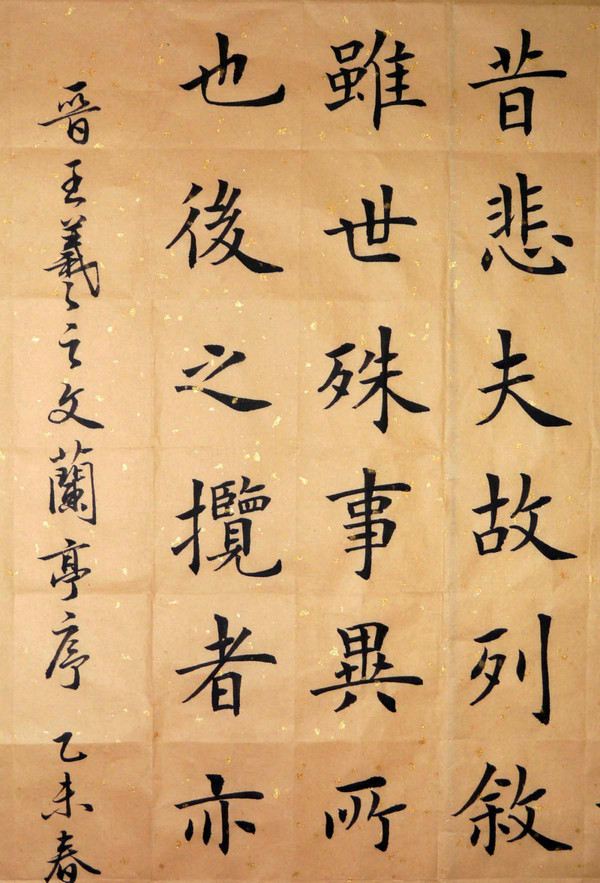 昔悲夫故列敘
雖世殊事異所
也後之攬者亦
晉王羲之文蘭亭序 乙未春